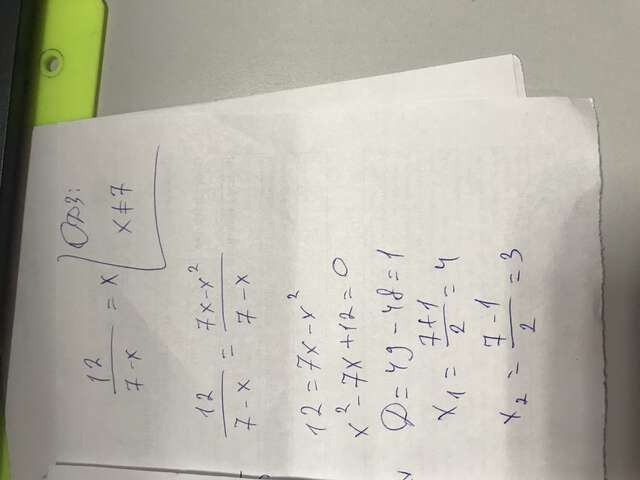 12/(7-x) = x
ОДЗ:
x≠7
12/(7-x) = (7x-x²)/(7-x)
12=7x-x²
x²-7x+12=0
D=49-48=1
x₁ = (7+1)/2 = 4
x₂ = (7-1)/2 = 3